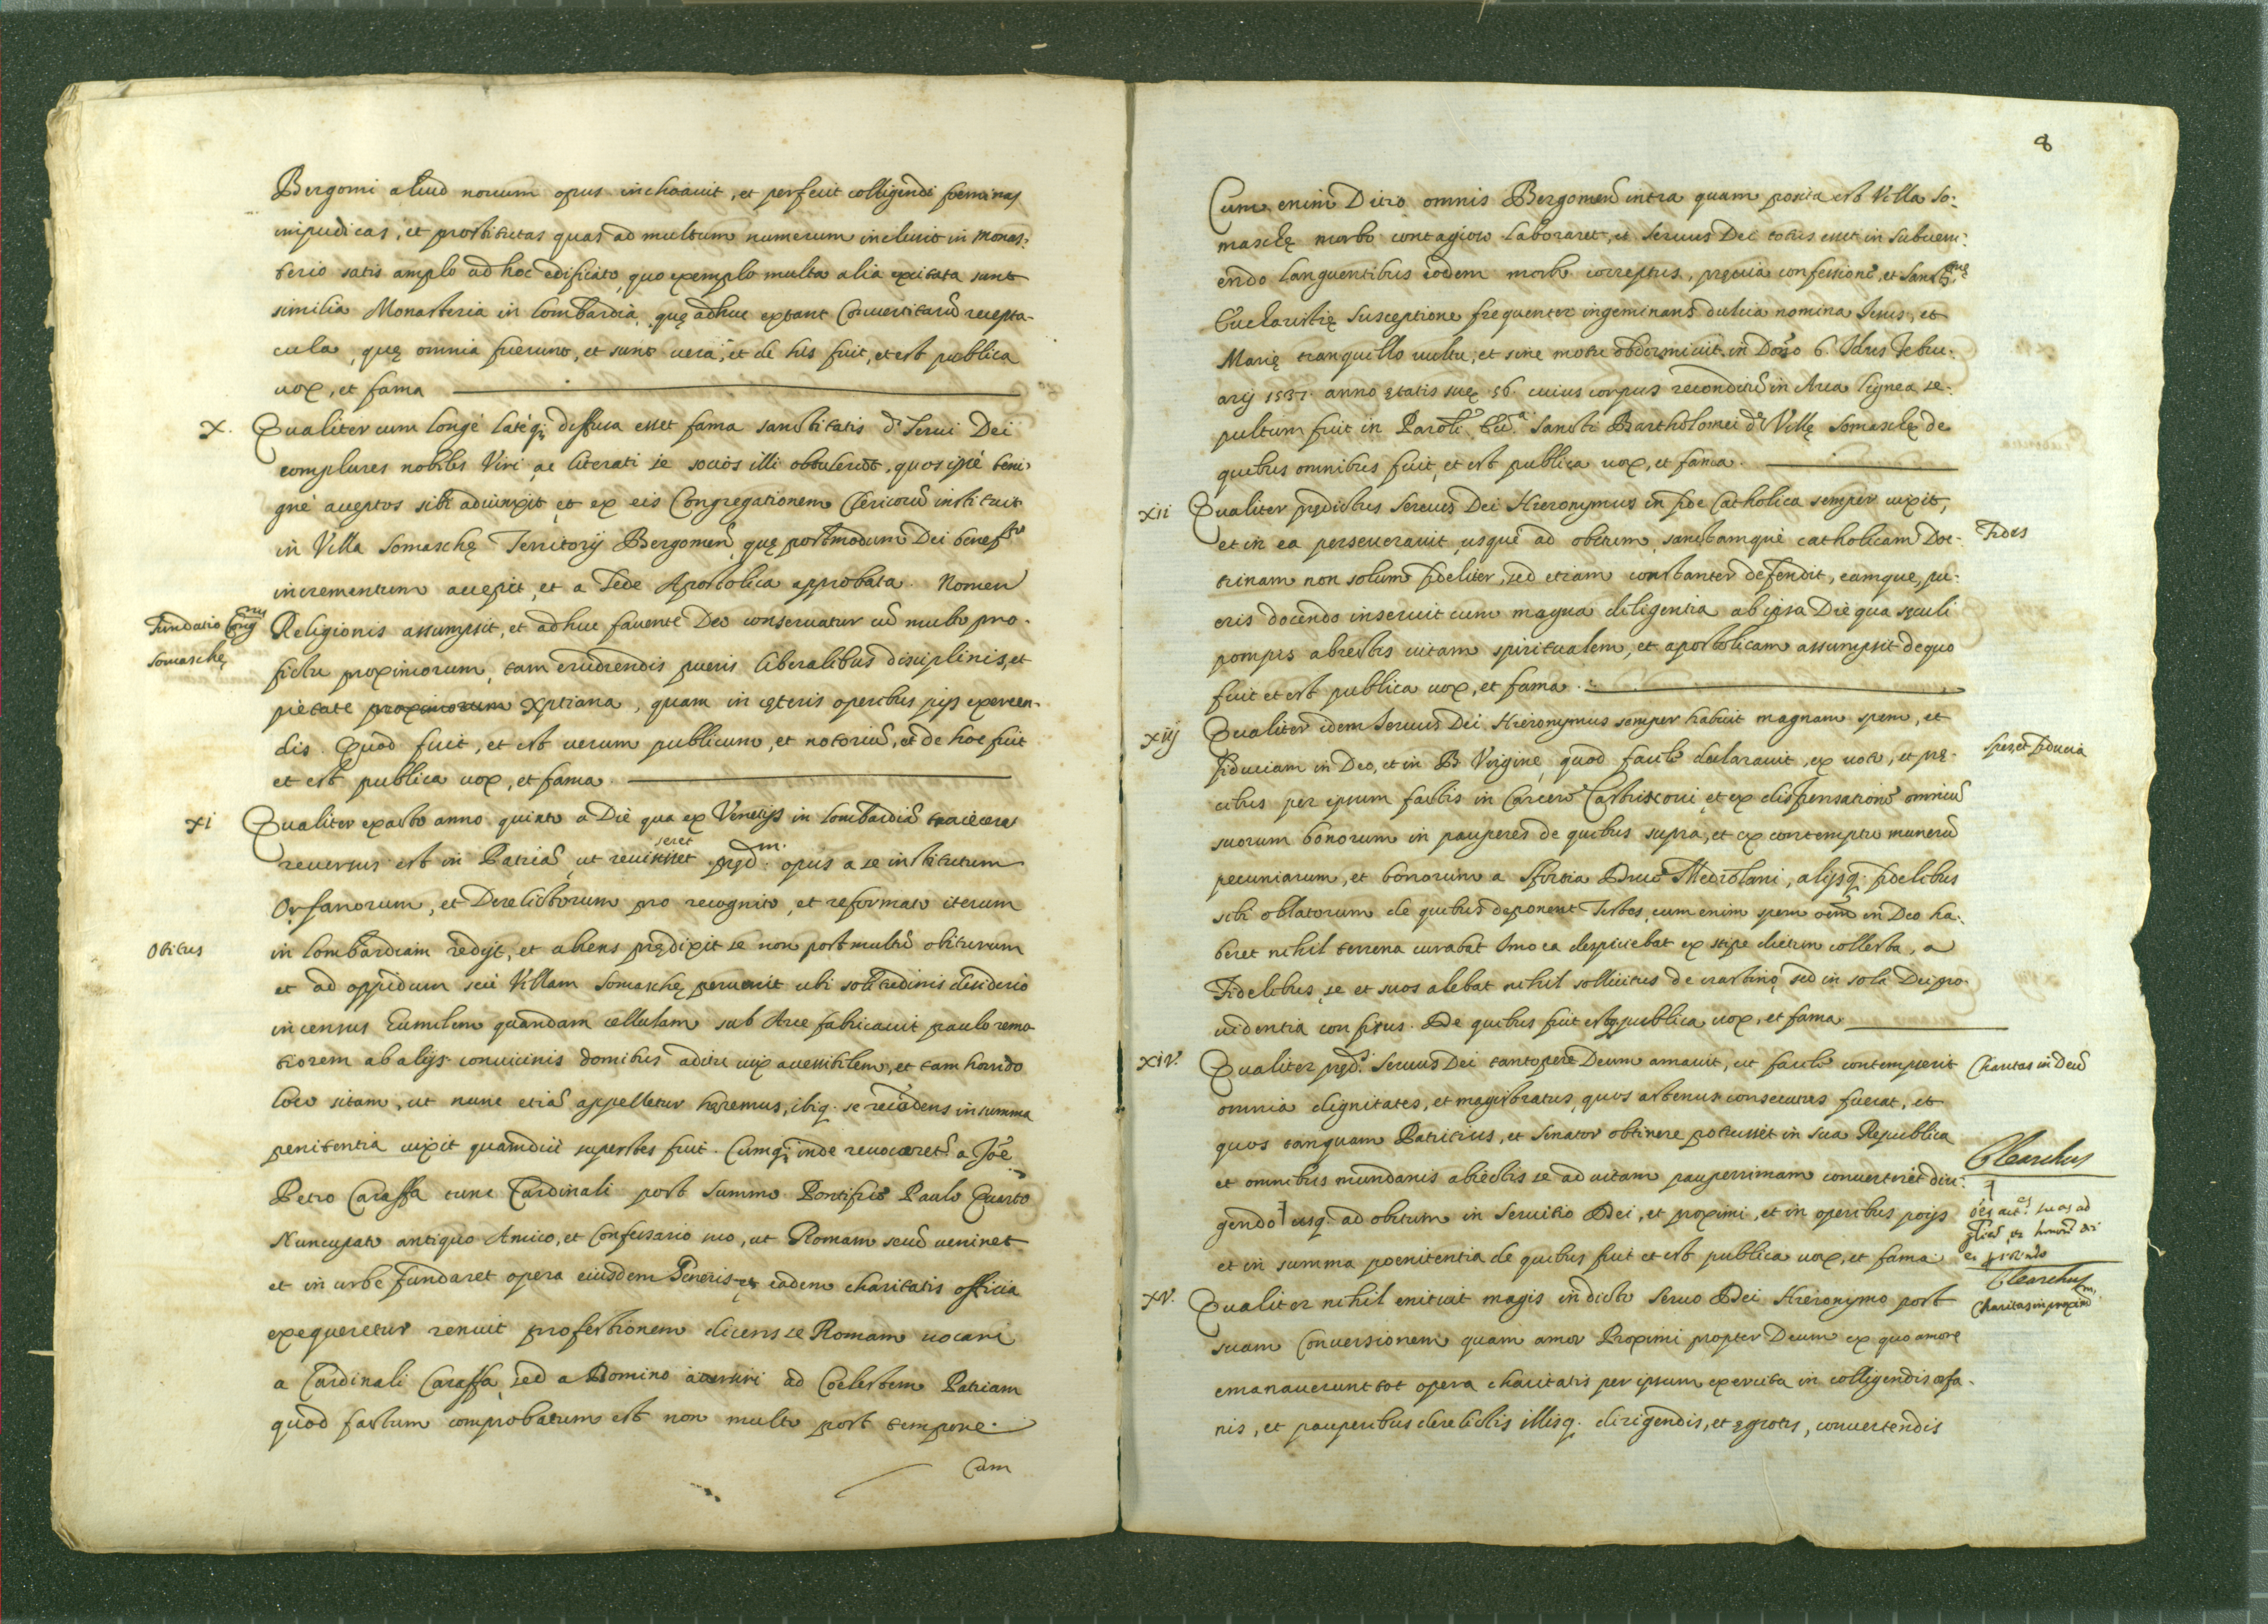 Bergomi aliud nouum opus inchoauit, et perfecit colligendi fœminas
impudicas, et prostitutas quas ad multum numerum inclusit in Monas:
terio satis amplo ad hoc edificato, quo exemplo multa alia excitata sunt
similia Monasteria in lombardia, quę adhuc extant Conuertitarũ recepta-
cula, quę omnia fuerunt, et sunt uera, et de his fuit, et est publica
uox, et fama
X. Qualiter cum longè latèq; diffusa esset fama sanctitatis dⁱ Serui Dei
complures nobiles Viri, ac literati se socios illi obtulerũt, quos ipse beni-
gnè acceptos sibi adiunxit, et ex eis Congregationem Clericorũ instituit
in Villa Somaschę Territorij Bergomeñ, quę postmodum Dei benefᵗᵒ
incrementum accepit, et a Sede Apostolica approbata Nomen
Fundatio Congⁿⁱˢ
Somaschę
Religionis assumpsit, et adhuc fauente Deo conseruatur cũ multo pro-
fictu proximorum, tam erudiendis pueris liberalibus disciplinis, et
pietate proximorum xptiana, quam in cęteris operibus pijs exercen-
dis. Quod fuit, et est uerum publicum, et notoriũ, et de hoc fuit
et est publica uox, et fama
XI Qualiter exacto anno quinto a Die qua ex Venetijs in lombardiã traiecerat
reuersus est in Patriã, ut reuisisset seret pręd.ᵐ opus a se institutum
Orfanorum, et Derelictorum pro recognito, et reformato iterum
Obitus
in lombardiam redijt, et abiens prędixit se non post multũ obiturum
et ad oppidum seù Villam Somaschę peruenit ubi solitudinis desiderio
incensus humilem quandam cellulam sub Arce fabricauit paulo remo-
tiorem ab alijs conuicinis domibus aditu uix accessibilem, et tam horrido
loco sitam, ut nunc etiã appelletur hęremus, ibiq. se recondens in summa
penitentia uixit quamdiù superstes fuit. Cumq; inde reuocaretʳ a Joẽ
Petro Caraffa tunc Cardinali post Summo Pontifice Paulo Quarto
Nuncupato antiquo Amico, et Confessario suo, ut Romam secũ ueniret
et in urbe fundaret opera eiusdem Generis et eadem charitatis officia
exequeretur renuit profectionem dicens se Romam uocari
a Cardinali Caraffa, sed a Domino ad Cœlestem Patriam
quod factum comprobatum est non multo post tempore.
Cum
8
Cum enim Ditio omnis Bergomeñ intra quam posita est Villa So:
maschę morbo contagioso laboraret, et seruus Dei totus esset in subueni:
endo languentibus eodem morbo correptus, pręuia confessione, et Sanctᵐᵉ
Eucharistię susceptione frequenter ingeminans dulcia nomina Jesus, et
Marię tranquillo uultu, et sine motu obdormiuit in Dño 6. Idus Febru-
arij 1537. anno ętatis suę 56. cuius corpus reconditũ in Arca lignea se-
pultum fuit in Paroli Ecc.ᵃ Sancti Bartholomei dᵉ Villę Somaschę de
quibus omnibus fuit, et est publica uox, et fama.
XII Qualiter prędictus Seruus Dei Hieronymus in fide Catholica semper uixit,
et in ea perseuerauit usque ad obitum, sanctamque catholicam Doc-
Fides
trinam non solum fideliter, sed etiam constanter defendit, eamque, pu-
eris docendo inseruit cum magna diligentia ab ipsa Die qua sęculi
pompis abiectis uitam spiritualem, et apostolicam assumpsit de quo
fuit et est publica uox, et fama.
XIIJ Qualiter idem Seruus Dei Hieronymus semper habuit magnam spem, et
fiduciam in Deo, et in B. Virgine, quod facile declarauit, ex uoto, et prę-
Spes, et fiducia
cibus per ipsum factis in Carcere Castrisnoui, et ex dispensatione omniũ
suorum bonorum in pauperes de quibus supra, et ex contemptu munerũ
pecuniarum, et bonorum a Sfortia Duce Mediolani, alijsq. fidelibus
sibi oblatorum de quibus deponent Testes, cum enim spem oẽm in Deo ha-
beret nihil terrena curabat Imo ea despiciebat ex stipe dietim collecta, a
Fidelibus, se et suos alebat nihil sollicitus de crastino, sed in sola Dei pro-
uidentia confisus. De quibus fuit estq. publica uox, et fama
XIV. Qualiter pręd.ˢ Seruus Dei tantopere Deum amauit, ut facile contempserit
Charitas in Deũ
omnia dignitates, et magistratus, quos actenus consecutus fuerat, et
quos tanquam Patritius, et Senator obtinere potuisset in sua Republica
et omnibus mundanis abiectis se ad uitam pauperrimam conuerterit diri-
Clearchus
gendo usq. ad obitum in Seruitio Dei, et proximi, et in operibus pijs
oẽs act.ᵉˢ suas ad
gloriã, et honorẽ Dei
et in summa pœnitentia de quibus fuit et est publica uox, et fama
Clearchus
XV. Qualiter nihil enituit magis in dicto Seruo Dei Hieronymo post
Charitas in proximᵐ
suam Conuersionem quam amor Proximi propter Deum ex quo amore
emanauerunt tot opera charitatis per ipsum exercita in colligendis orfa-
nis, et pauperibus derelictis illisq. dirigendis, et ęgrotis, conuertendis